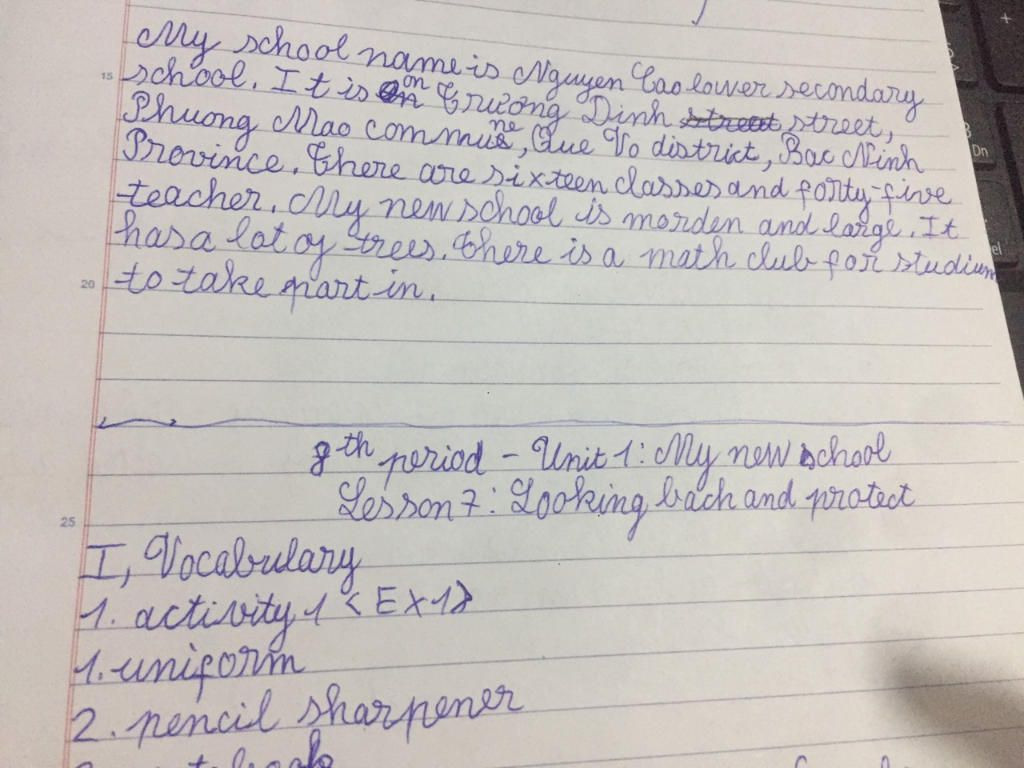 My school name is Nguyen Cao lower secondary
15 school. It is on Trường Dinh street street,
Phuong Mao commune, Que Vo district, Bac Ninh
Province. There are sixteen classes and forty-five
teacher. My new school is morden and large. It
has a lot of trees. There is a math club for studium
20 to take part in.
8th period - Unit 1: My new school
Lesson 7: Looking bach and protect
25
I, Vocabulary
1. activity 1 <EX1>
1. uniform
2. pencil sharpener